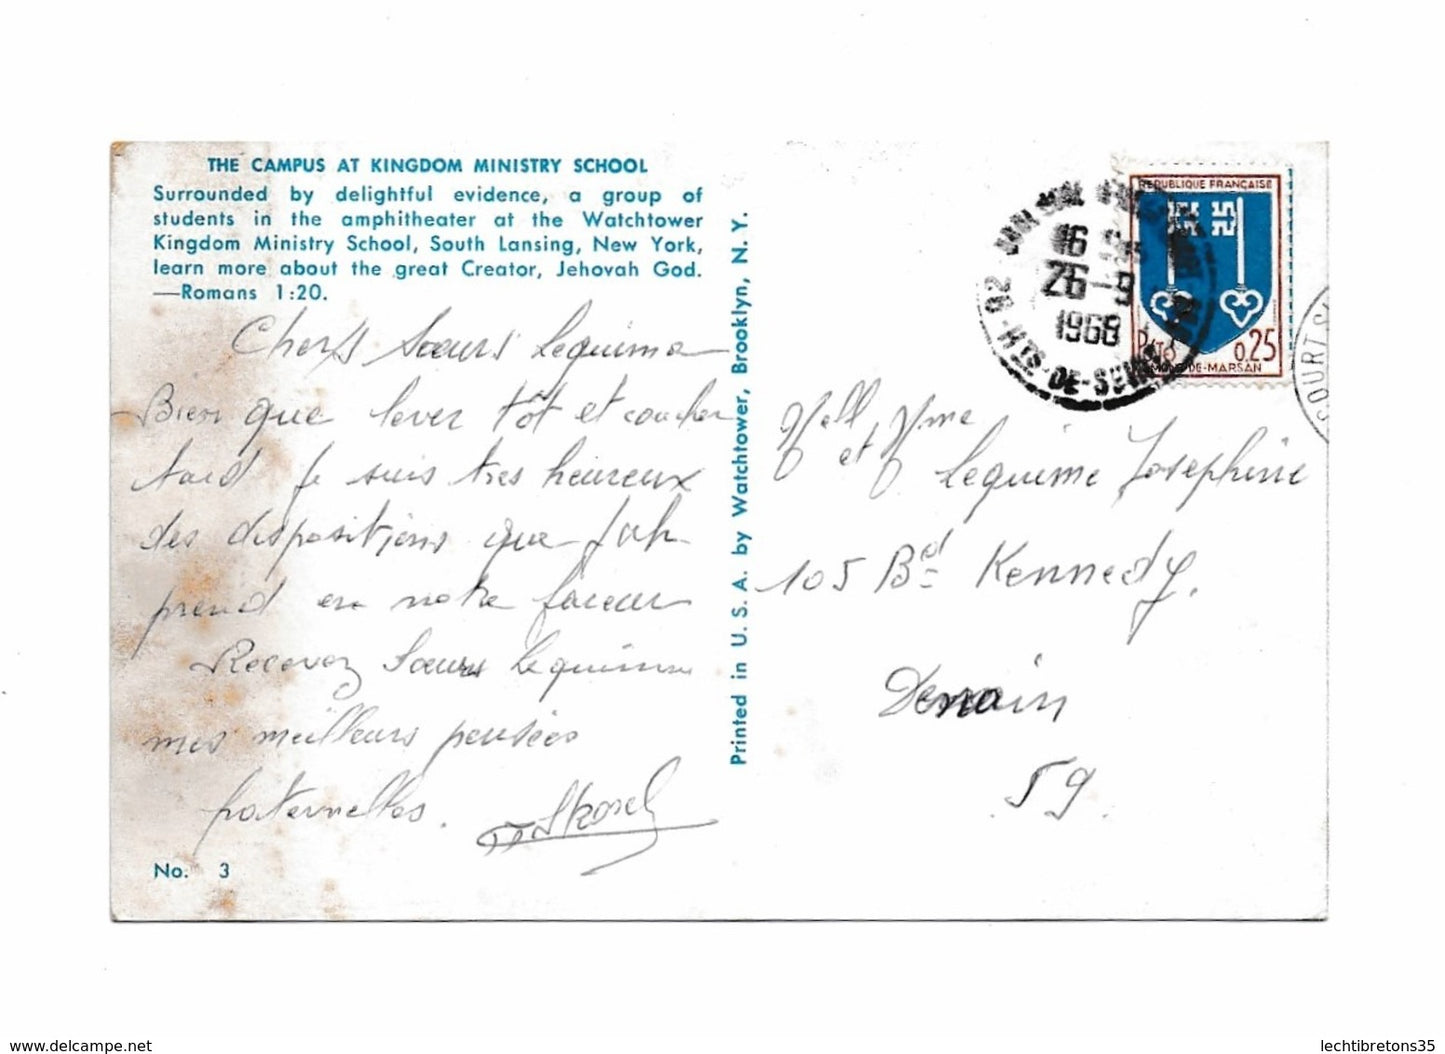 THE CAMPUS AT KINGDOM MINISTRY SCHOOL
Surrounded by delightful evidence, a group of
students in the amphitheater at the Watchtower
Kingdom Ministry School, South Lansing, New York,
learn more about the great Creator, Jehovah God.
—Romans 1:20.
Chers Sœurs Lequime
Bien que lever tôt et coucher
tard je suis tres heureux
des dispositions que Jah
prend en notre faveur
Recevez Sœurs Lequime
mes meilleurs pensées
fraternelles.
No. 3
Printed in U. S. A. by Watchtower, Brooklyn, N. Y.
16
26-9
1968
92
HTS-DE-SEINE
REPUBLIQUE FRANÇAISE
0.25
MONT-DE-MARSAN
Mell et Mme
Lequime Josephine
105 Bd Kennedy.
Denain
59.
www.delcampe.net
lechtibretons35